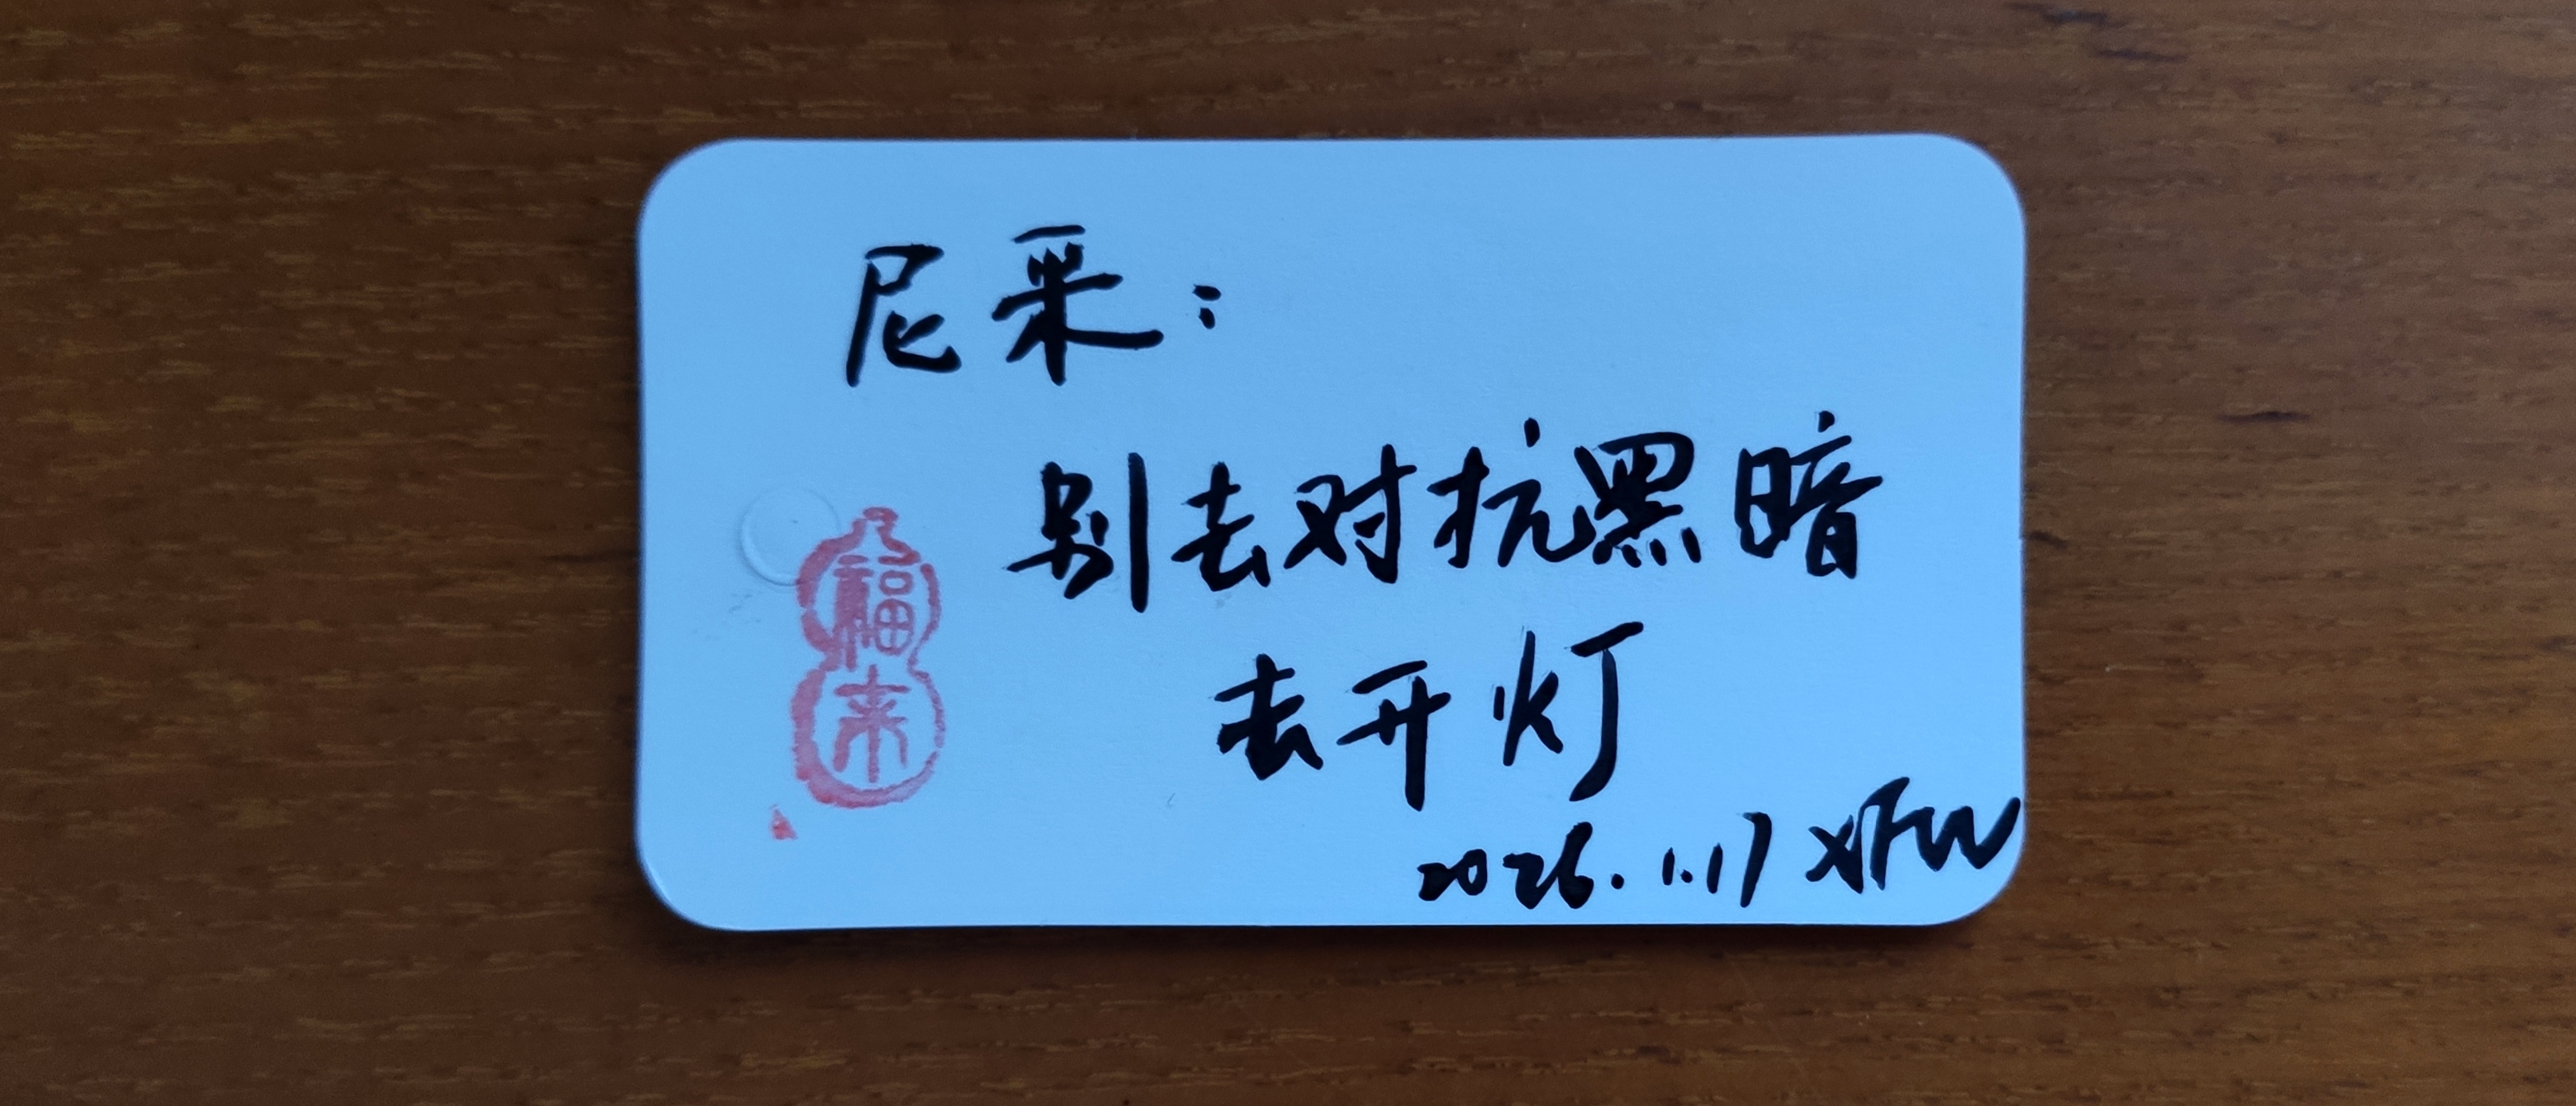 尼采：
别去对抗黑暗
去开灯
2026.1.17 XFW
福
来